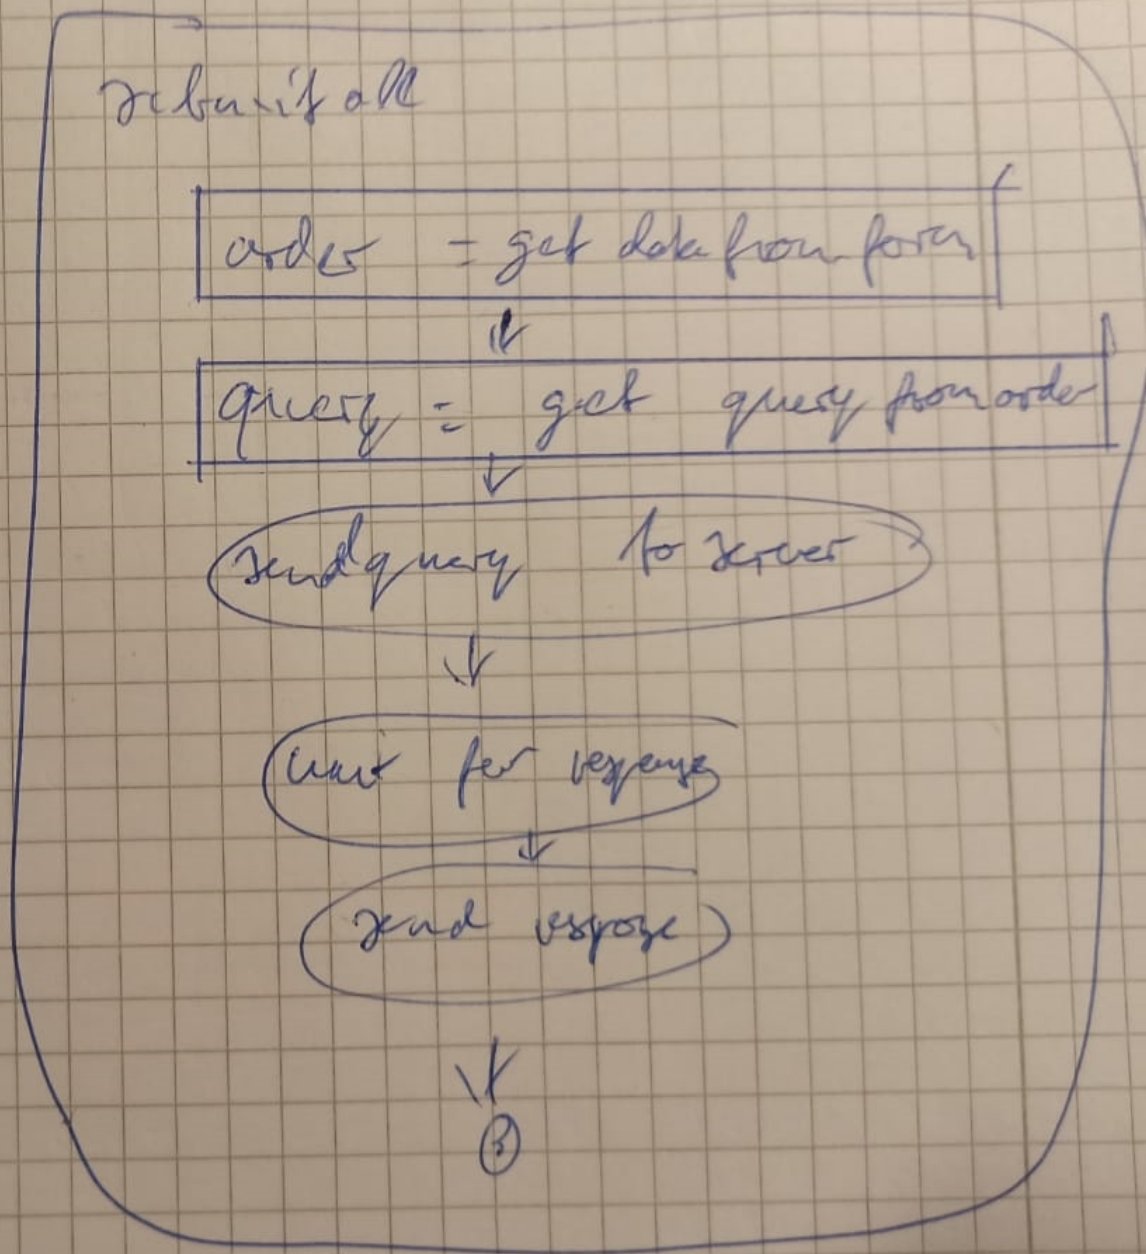 submit all
order = get data from form
query = get query from order
send query to server
wait for response
send respose